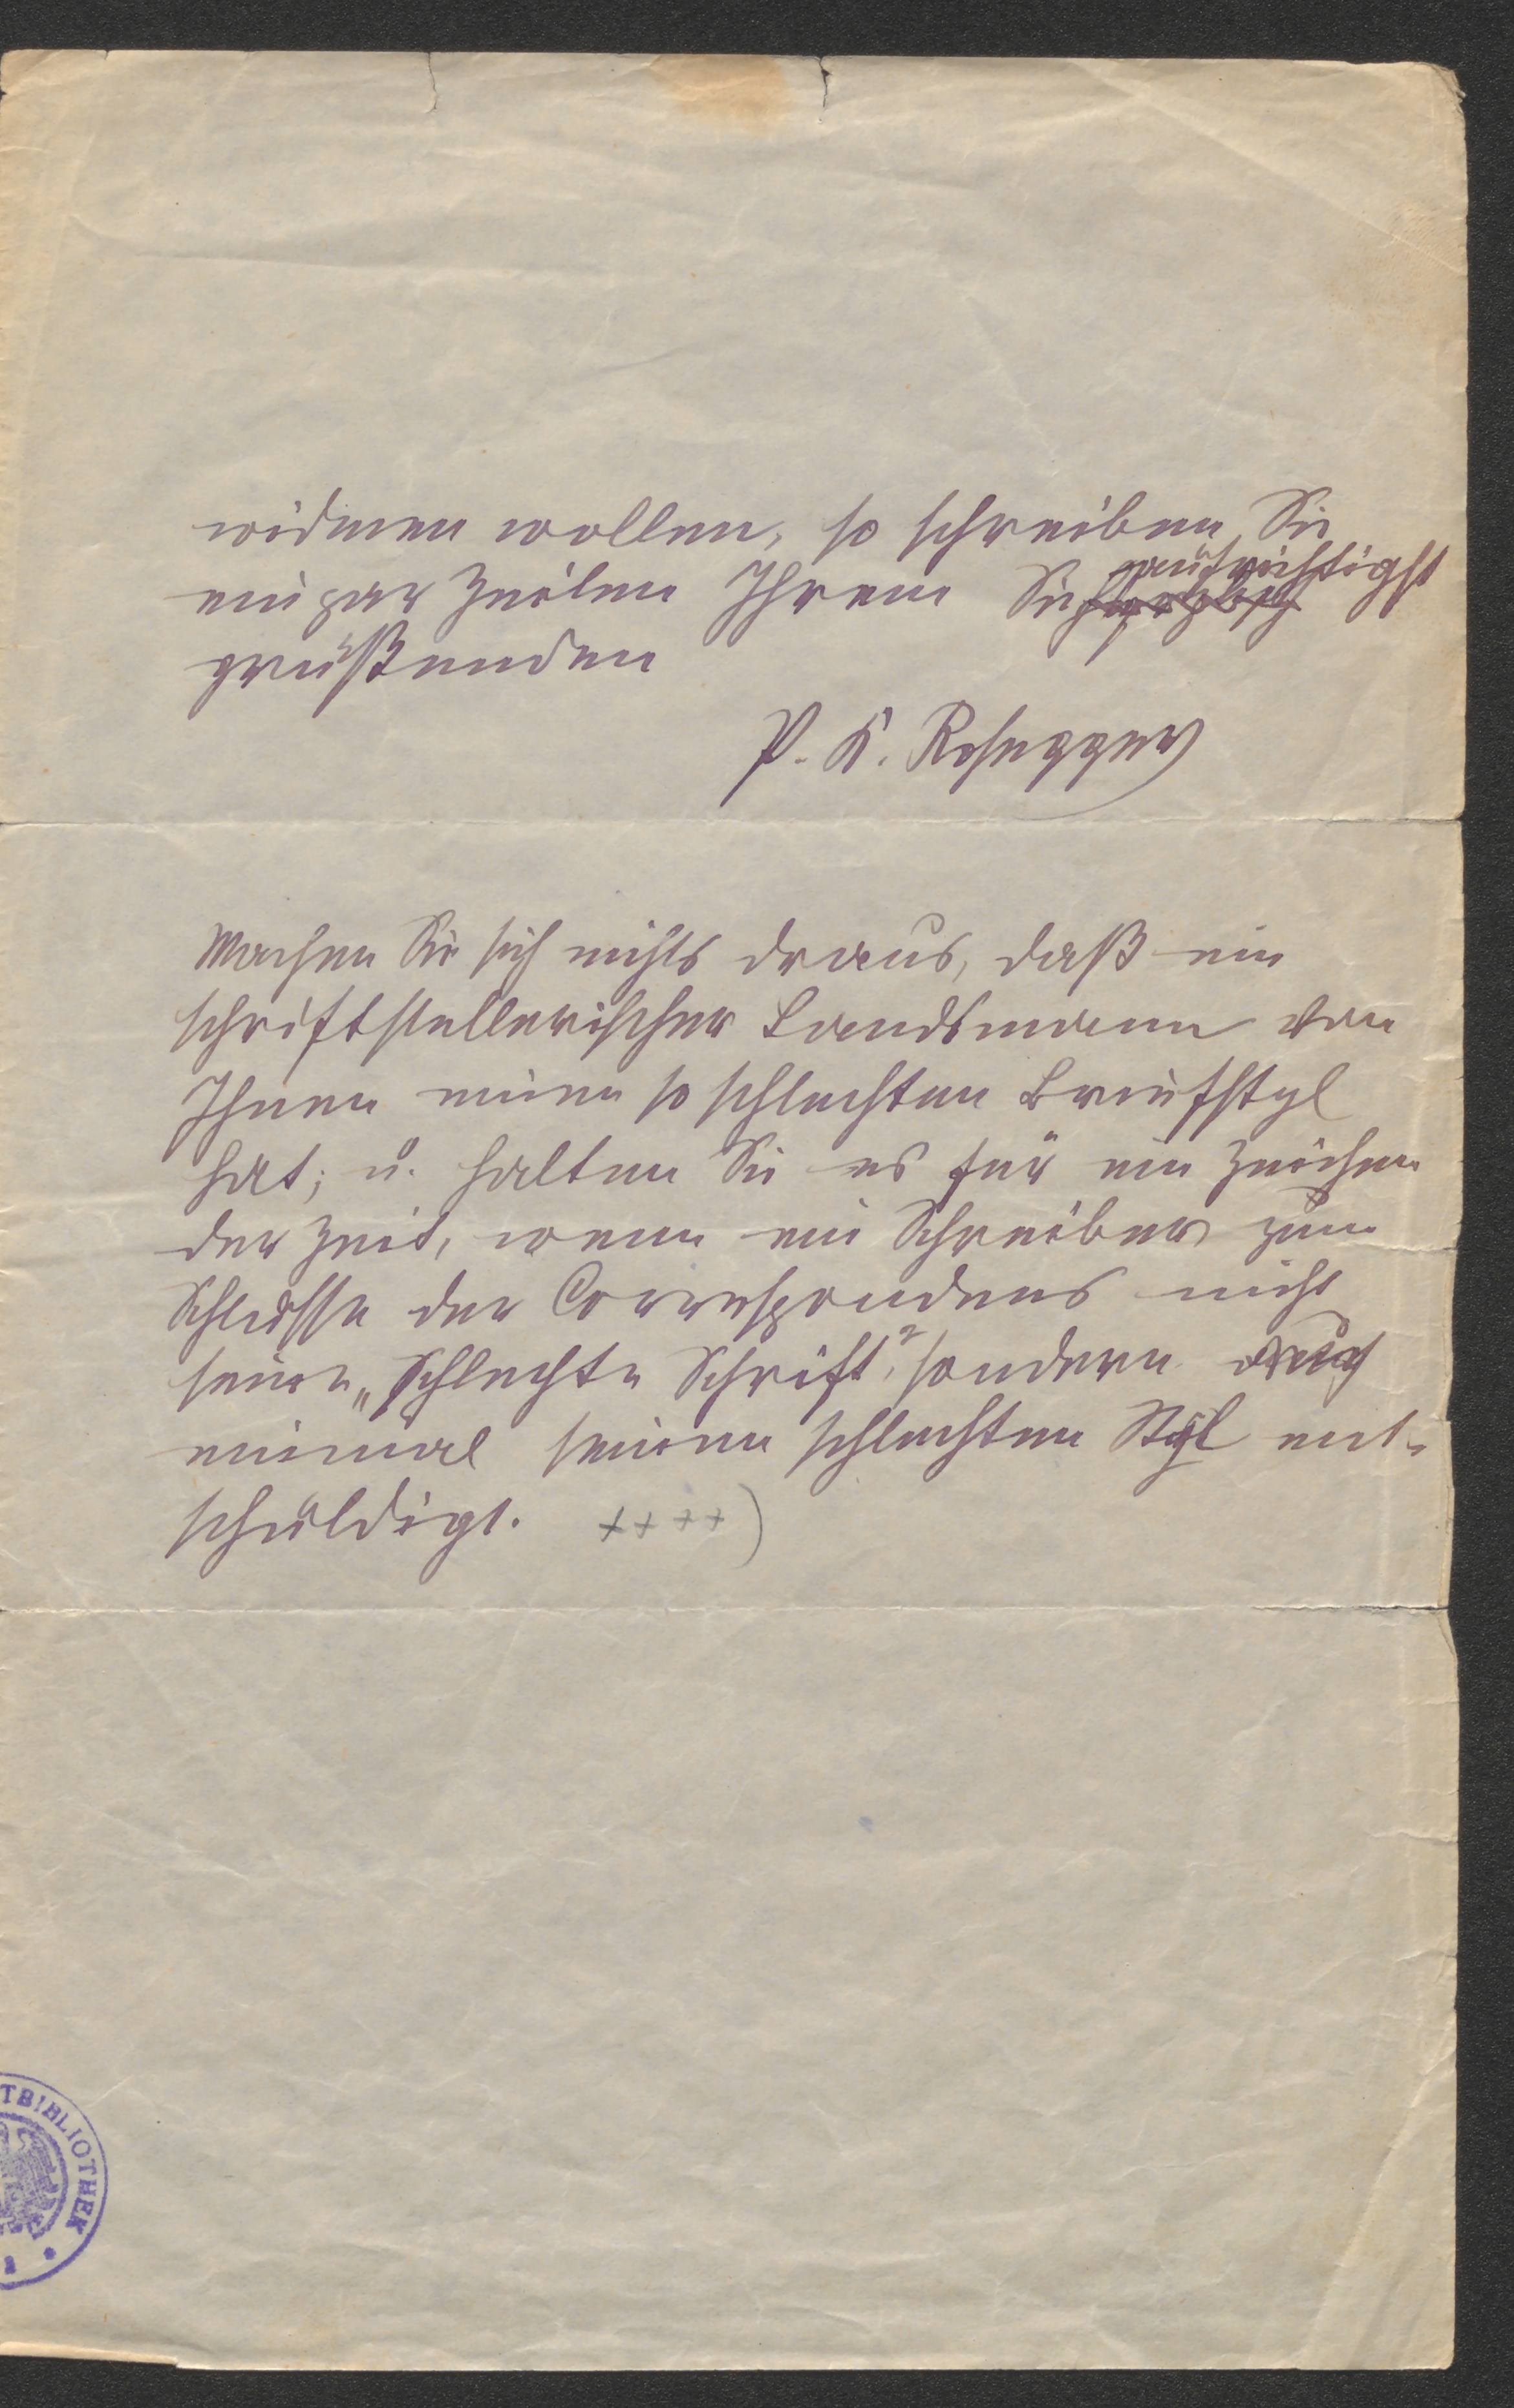 widmen wollen, so schreiben Sie
ein par Zeilen Ihrem Sie aufrichtigst
grüßenden
P. K. Rosegger
Machen Sie sich nichts draus, daß ein
schriftstellerischer Landsmann von
Ihnen einen so schlechten Briefstyl
hat; u. halten Sie es für ein Zeichen
der Zeit, wenn ein Schreiber zum
Schlusse der Correspondens nicht
seine „schlechte Schrift", sondern auch
einmal seinen schlechten Styl ent-
schuldigt. ++++)
TBIBLIOTHEK